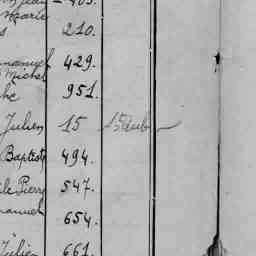 Marie
s 210.
manuel 429.
Michel
he 951.
Julien 15
Baptiste 494.
le Pierre 547.
manuel 654.
Julien 661.